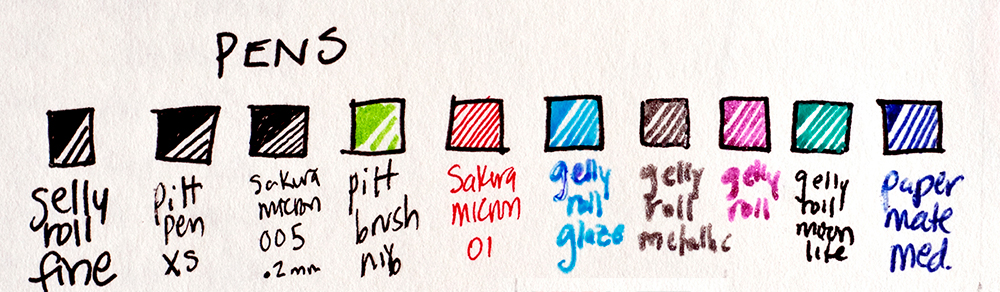 PENS
gelly
roll
fine
pitt
pen
xs
sakura
micron
005
.2mm
pitt
brush
nib
sakura
micron
01
gelly
roll
glaze
gelly
roll
metallic
gelly
roll
gelly
roll
moon
lite
paper
mate
med.